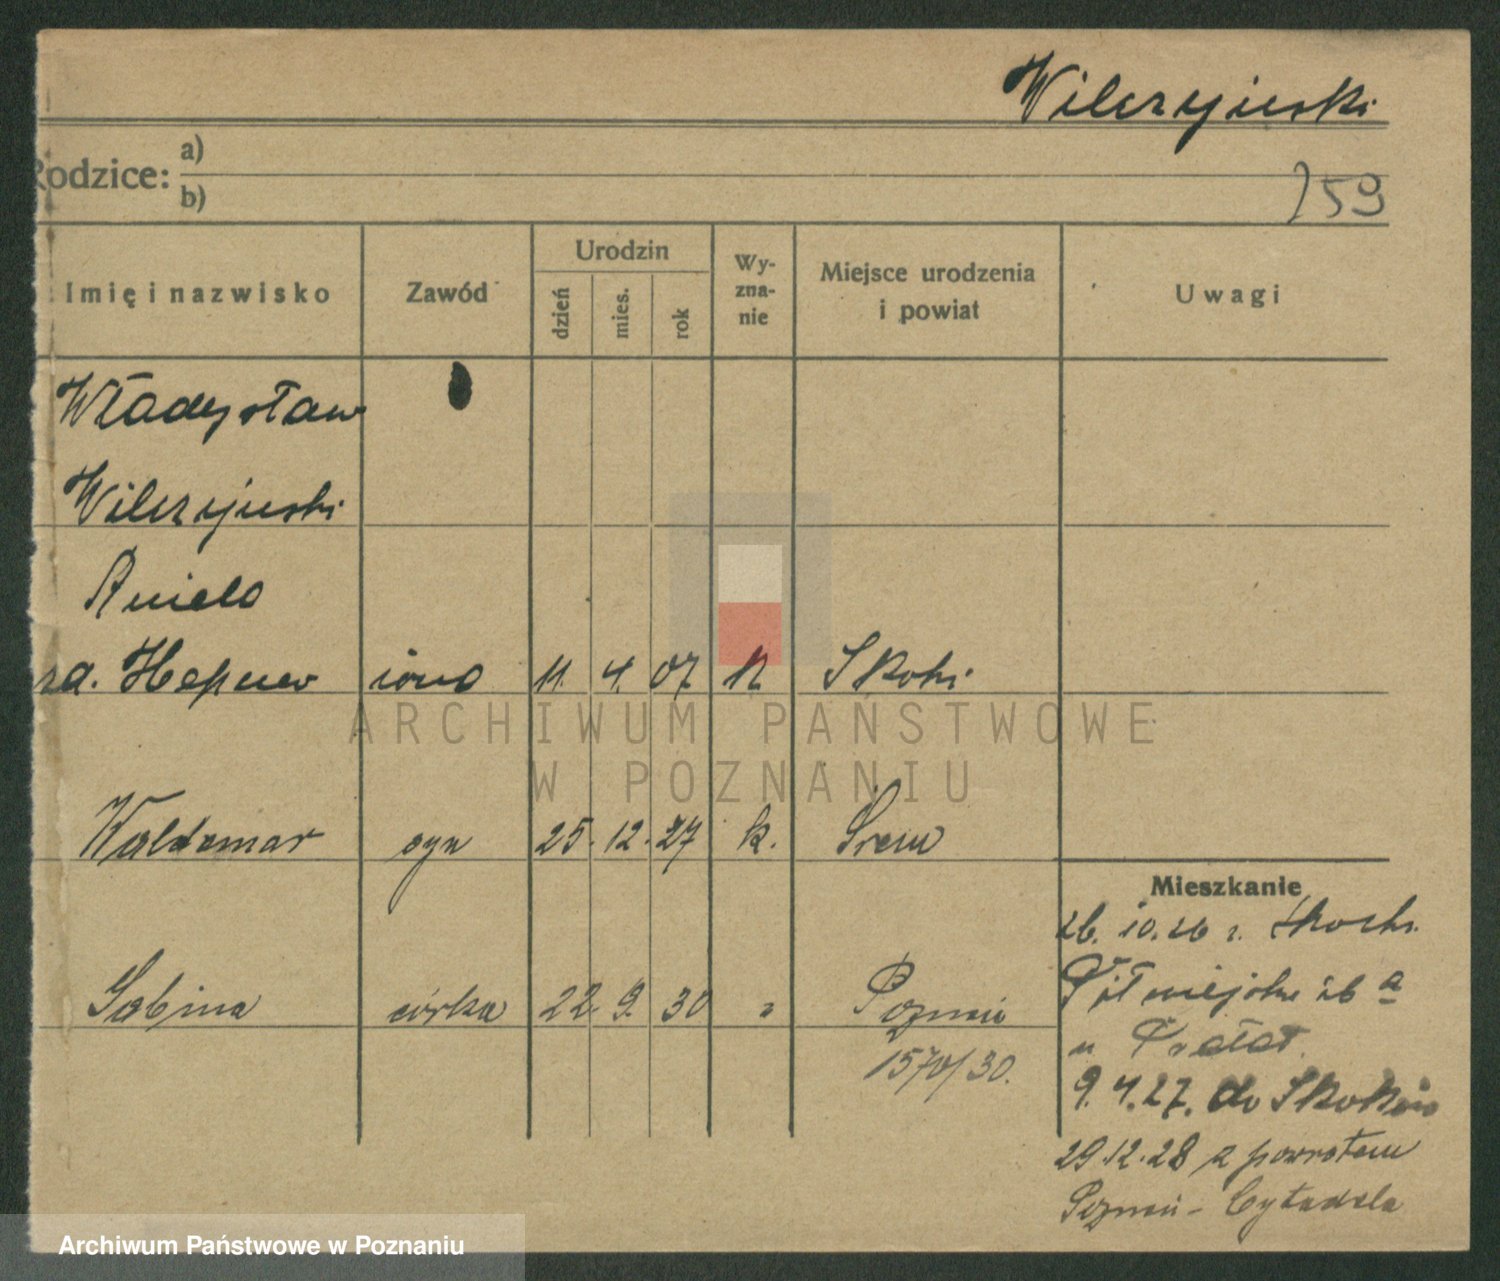 Wilczyński
Rodzice: a)
b)
259
Imię i nazwisko Zawód Urodzin dzień mies. rok Wy-zna-nie Miejsce urodzenia i powiat Uwagi
Władysław
Wilczyński
Aniela
za. Hepner żona 11. 4. 07 k Skoki
Waldemar syn 25. 12. 27 k. Śrem
Sabina córka 22. 9. 30 " Poznań
1570/30.
Mieszkanie
26. 10. 26 r. Skoki
26 a
u
9. 4. 27. do Skoków
29.12.28 z powrotem
Poznań - Cytadela
ARCHIWUM PAŃSTWOWE
W POZNANIU
Archiwum Państwowe w Poznaniu